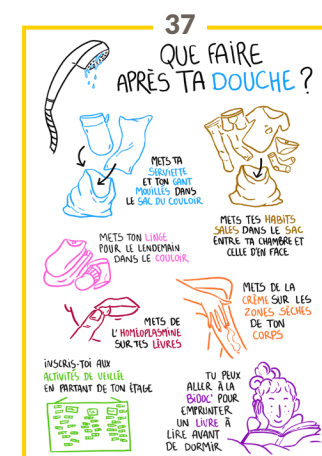 37
QUE FAIRE
APRÈS TA DOUCHE ?
METS TA
SERVIETTE
ET TON GANT
MOUILLÉS DANS
LE SAC DU COULOIR
METS TES HABITS
SALES DANS LE SAC
ENTRE TA CHAMBRE ET
CELLE D'EN FACE
METS TON LINGE
POUR LE LENDEMAIN
DANS LE COULOIR
METS DE LA
CRÈME SUR LES
ZONES SÈCHES
DE TON
CORPS
METS DE
L'HOMÉOPLASMINE
SUR TES LÈVRES
INSCRIS-TOI AUX
ACTIVITÉS DE VEILLÉE
EN PARTANT DE TON ÉTAGE
TU PEUX
ALLER À LA
BIDOC' POUR
EMPRUNTER
UN LIVRE À
LIRE AVANT
DE DORMIR